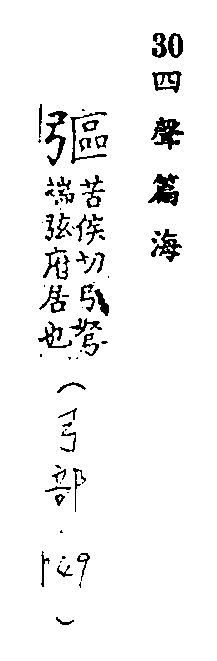 30四聲篇海
彄
苦侯切弓弩
端弦府居也
(弓部.149)